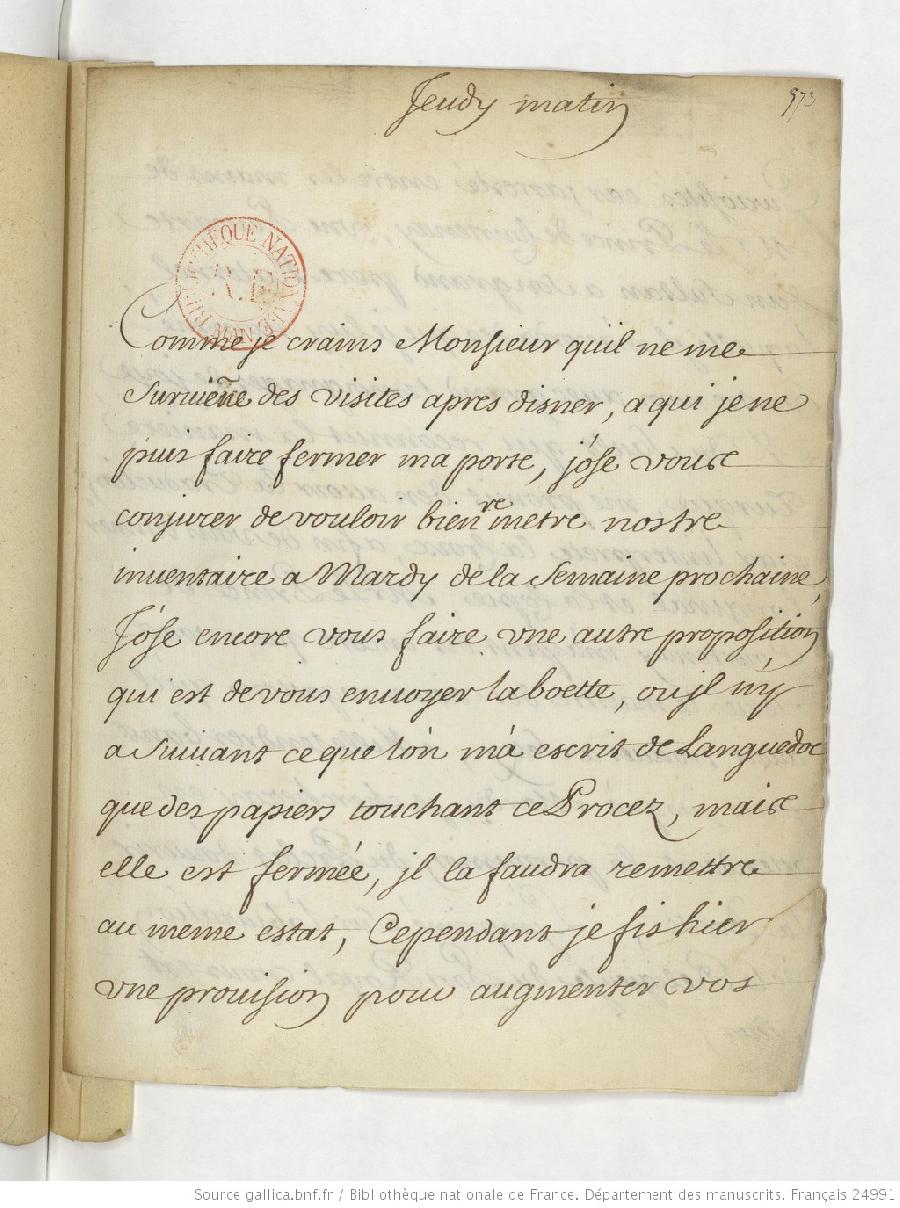 Jeudy matin
973
BIBLIOTHEQUE NATIONALE MANUSCRITS
R.F.
Comme je crains Monsieur quil ne me
surviene des visites apres disner, a qui je ne
puis faire fermer ma porte, j'ose vous
conjurer de vouloir bien remetre nostre
inuentaire a Mardy de la semaine prochaine,
J'ose encore vous faire vne autre proposition,
qui est de vous enuoyer la boette, ou jl n'y
a suiuant ce que l'on m'a escrit de Languedoc
que des papiers touchant ce Procez, mais
elle est fermée, jl la faudra remettre
au meme estat, Cependant je fis hier
vne prouision pour augmenter vos
Source gallica.bnf.fr / Bibliothèque nationale de France. Département des manuscrits. Français 24991